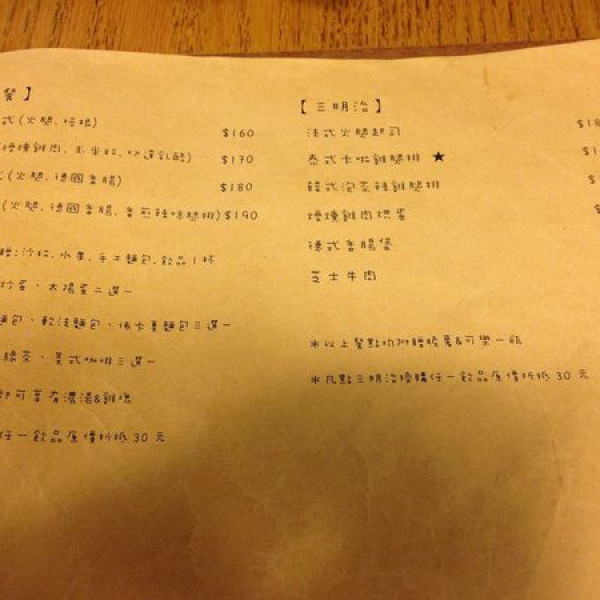 餐】
式(火腿、培根) $160
煙燻雞肉、玉米粒、切達乳酪) $170
(火腿、德國香腸) $180
(火腿、德國香腸、香煎辣味腿排) $190
贈:沙拉、水果、手工麵包、飲品1杯
炒蛋、太陽蛋二選一
麵包、軟法麵包、佛卡夏麵包三選一
綠茶、美式咖啡三選一
即可享有濃湯&雞塊
任一飲品原價折抵 30 元
【三明治】
法式火腿起司 $18
泰式卡啦雞腿排 ★ $1
韓式泡菜辣雞腿排 $
煙燻雞肉烘蛋
德式香腸堡
芝士牛肉
*以上餐點均附贈脆薯&可樂一瓶
*凡點三明治換購任一飲品原價折抵 30 元